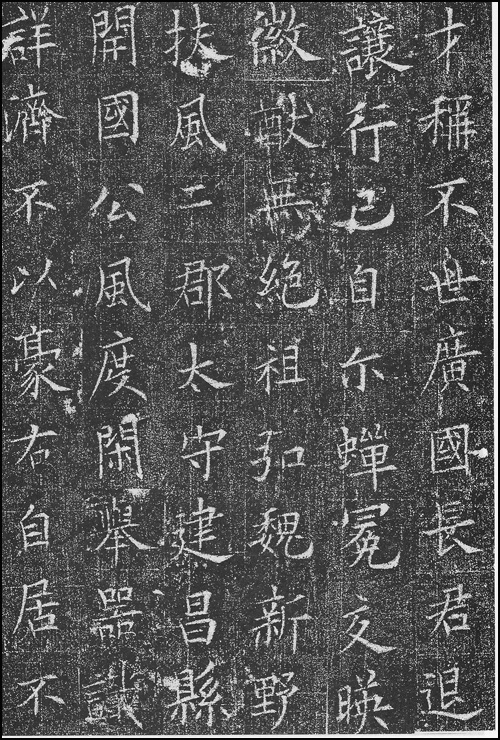 才稱不世廣國長君退
讓行己自尒蟬冕交暎
徽猷無絕祖弘魏新野
扶風二郡太守建昌縣
開國公風度閑舉器識
詳濟不以豪右自居不